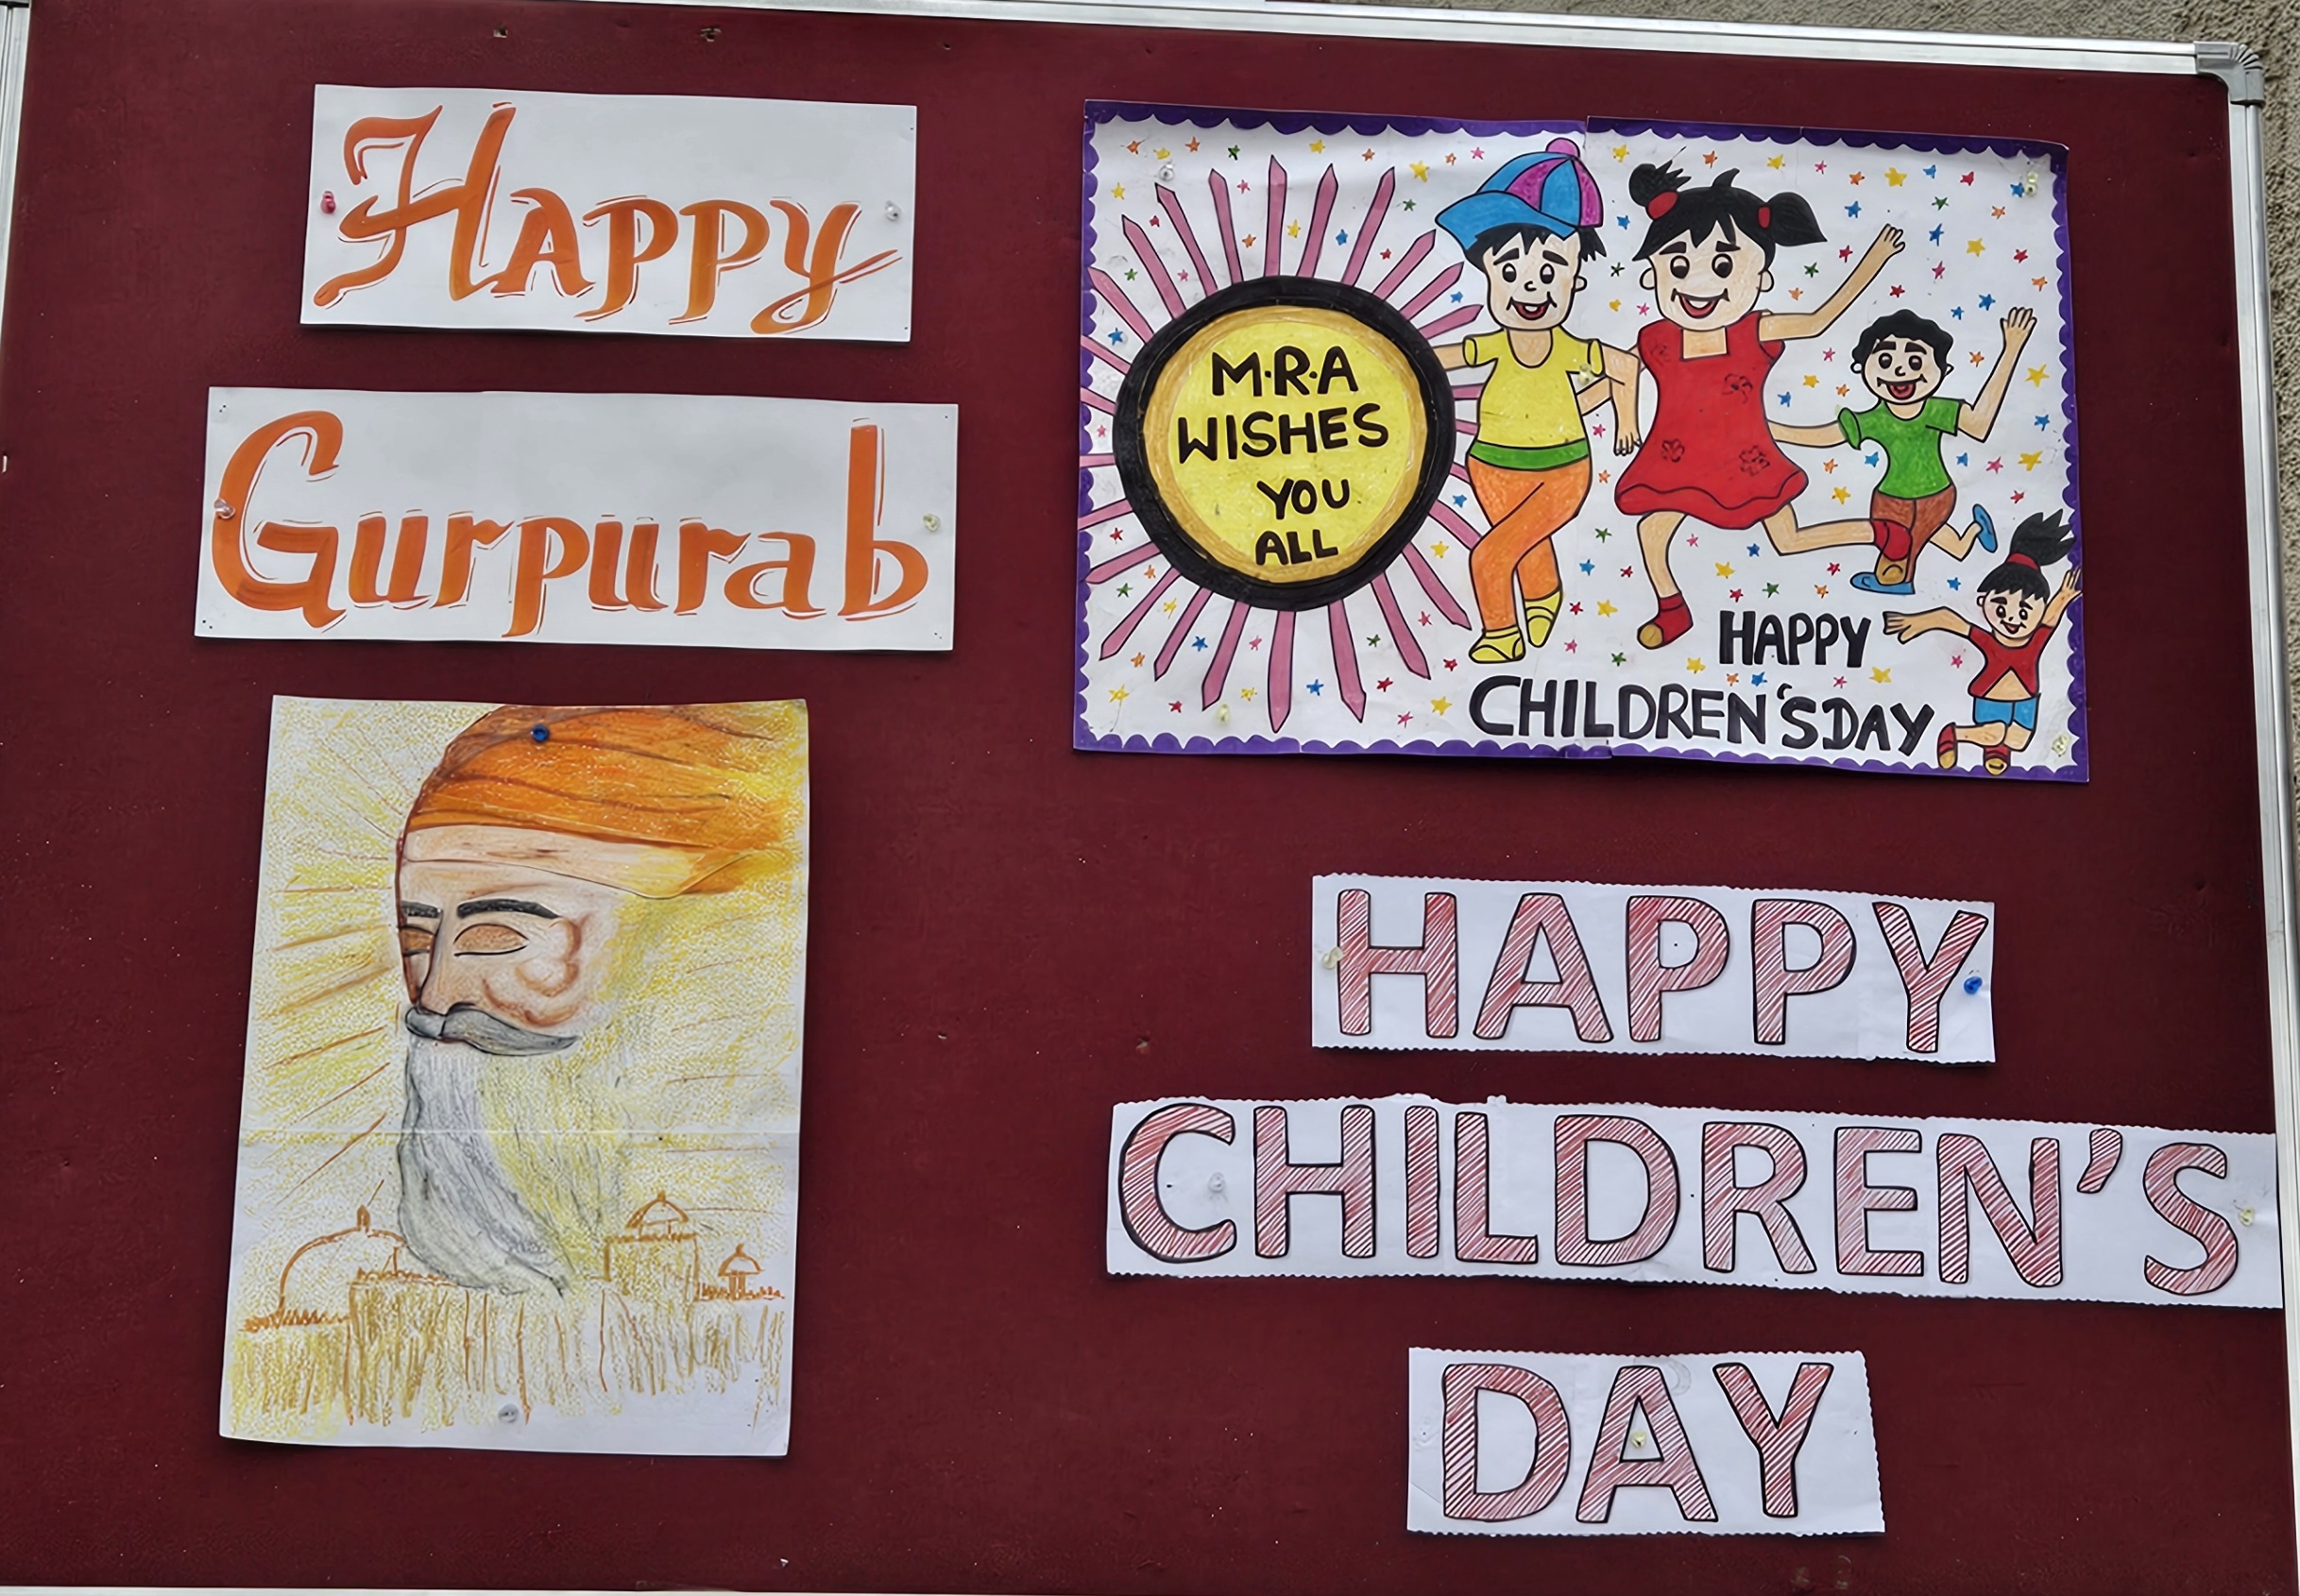 Happy
Gurpurab
M.R.A
WISHES
YOU
ALL
HAPPY
CHILDREN'S DAY
HAPPY
CHILDREN'S
DAY